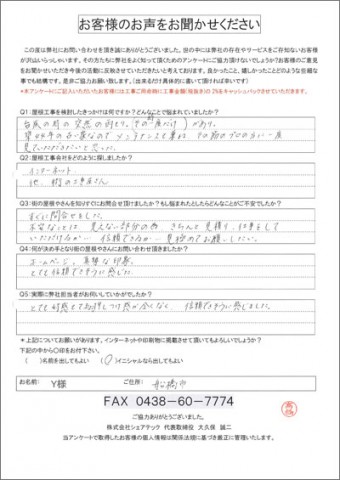 お客様のお声をお聞かせください
この度は弊社にお問い合わせを頂き誠にありがとうございました。世の中には弊社の存在やサービスをご存知ないお客様
が沢山いらっしゃいます。その方たちに弊社をよく知って頂くためのアンケートにご協力頂けないでしょうか?お客様のご意見
をお聞かせいただき今後の活動に反映させていただきたいと考えております。良かったこと、嬉しかったことどのような些細な
事でも結構です。是非ご協力お願いします。(出来るだけ具体的に書いて頂けますと幸いです)
Q1:屋根工事を検討したきっかけは何ですか?どんなことで悩まれていましたか?
台風の時の突然の雨もり。
Q2:屋根工事会社をどのように探しましたか?
インターネット
他、街の工事屋さん
Q3:街の屋根やさんを知りすぐにお問合せ頂けましたか?もし悩まれたとしたらどんなことがご不安でしたか?
すぐに問合せをした。
不安なことは、見えない部分の為、きちんと見積り、仕事をして
いただけるか… 信頼できるか… 見極めてお願いしたい。
Q4:何が決め手となり街の屋根やさんにお問い合わせ頂きましたか?
ホームページ。真摯な印象。
とても信頼できそうに感じた
Q5:実際に弊社担当者がお伺いしていかがでしたか?
とても好感もてお押しつけ感が全くなく、信頼できそうに感じました。
*上記についてお願いがあります。インターネットや印刷物に掲載させて頂いてもよろしいでしょうか?
下記の中から○印をお付け下さい。
( )名前を出してもよい (○)イニシャルなら出してもよい
お名前: Y様 ご住所: 船橋市
FAX 0438-60-7774
ご協力ありがとうございました。
株式会社シェアテック 代表取締役 大久保 誠二
当アンケートで取得したお客様の個人情報は関係法規に基づき厳正に管理いたします。